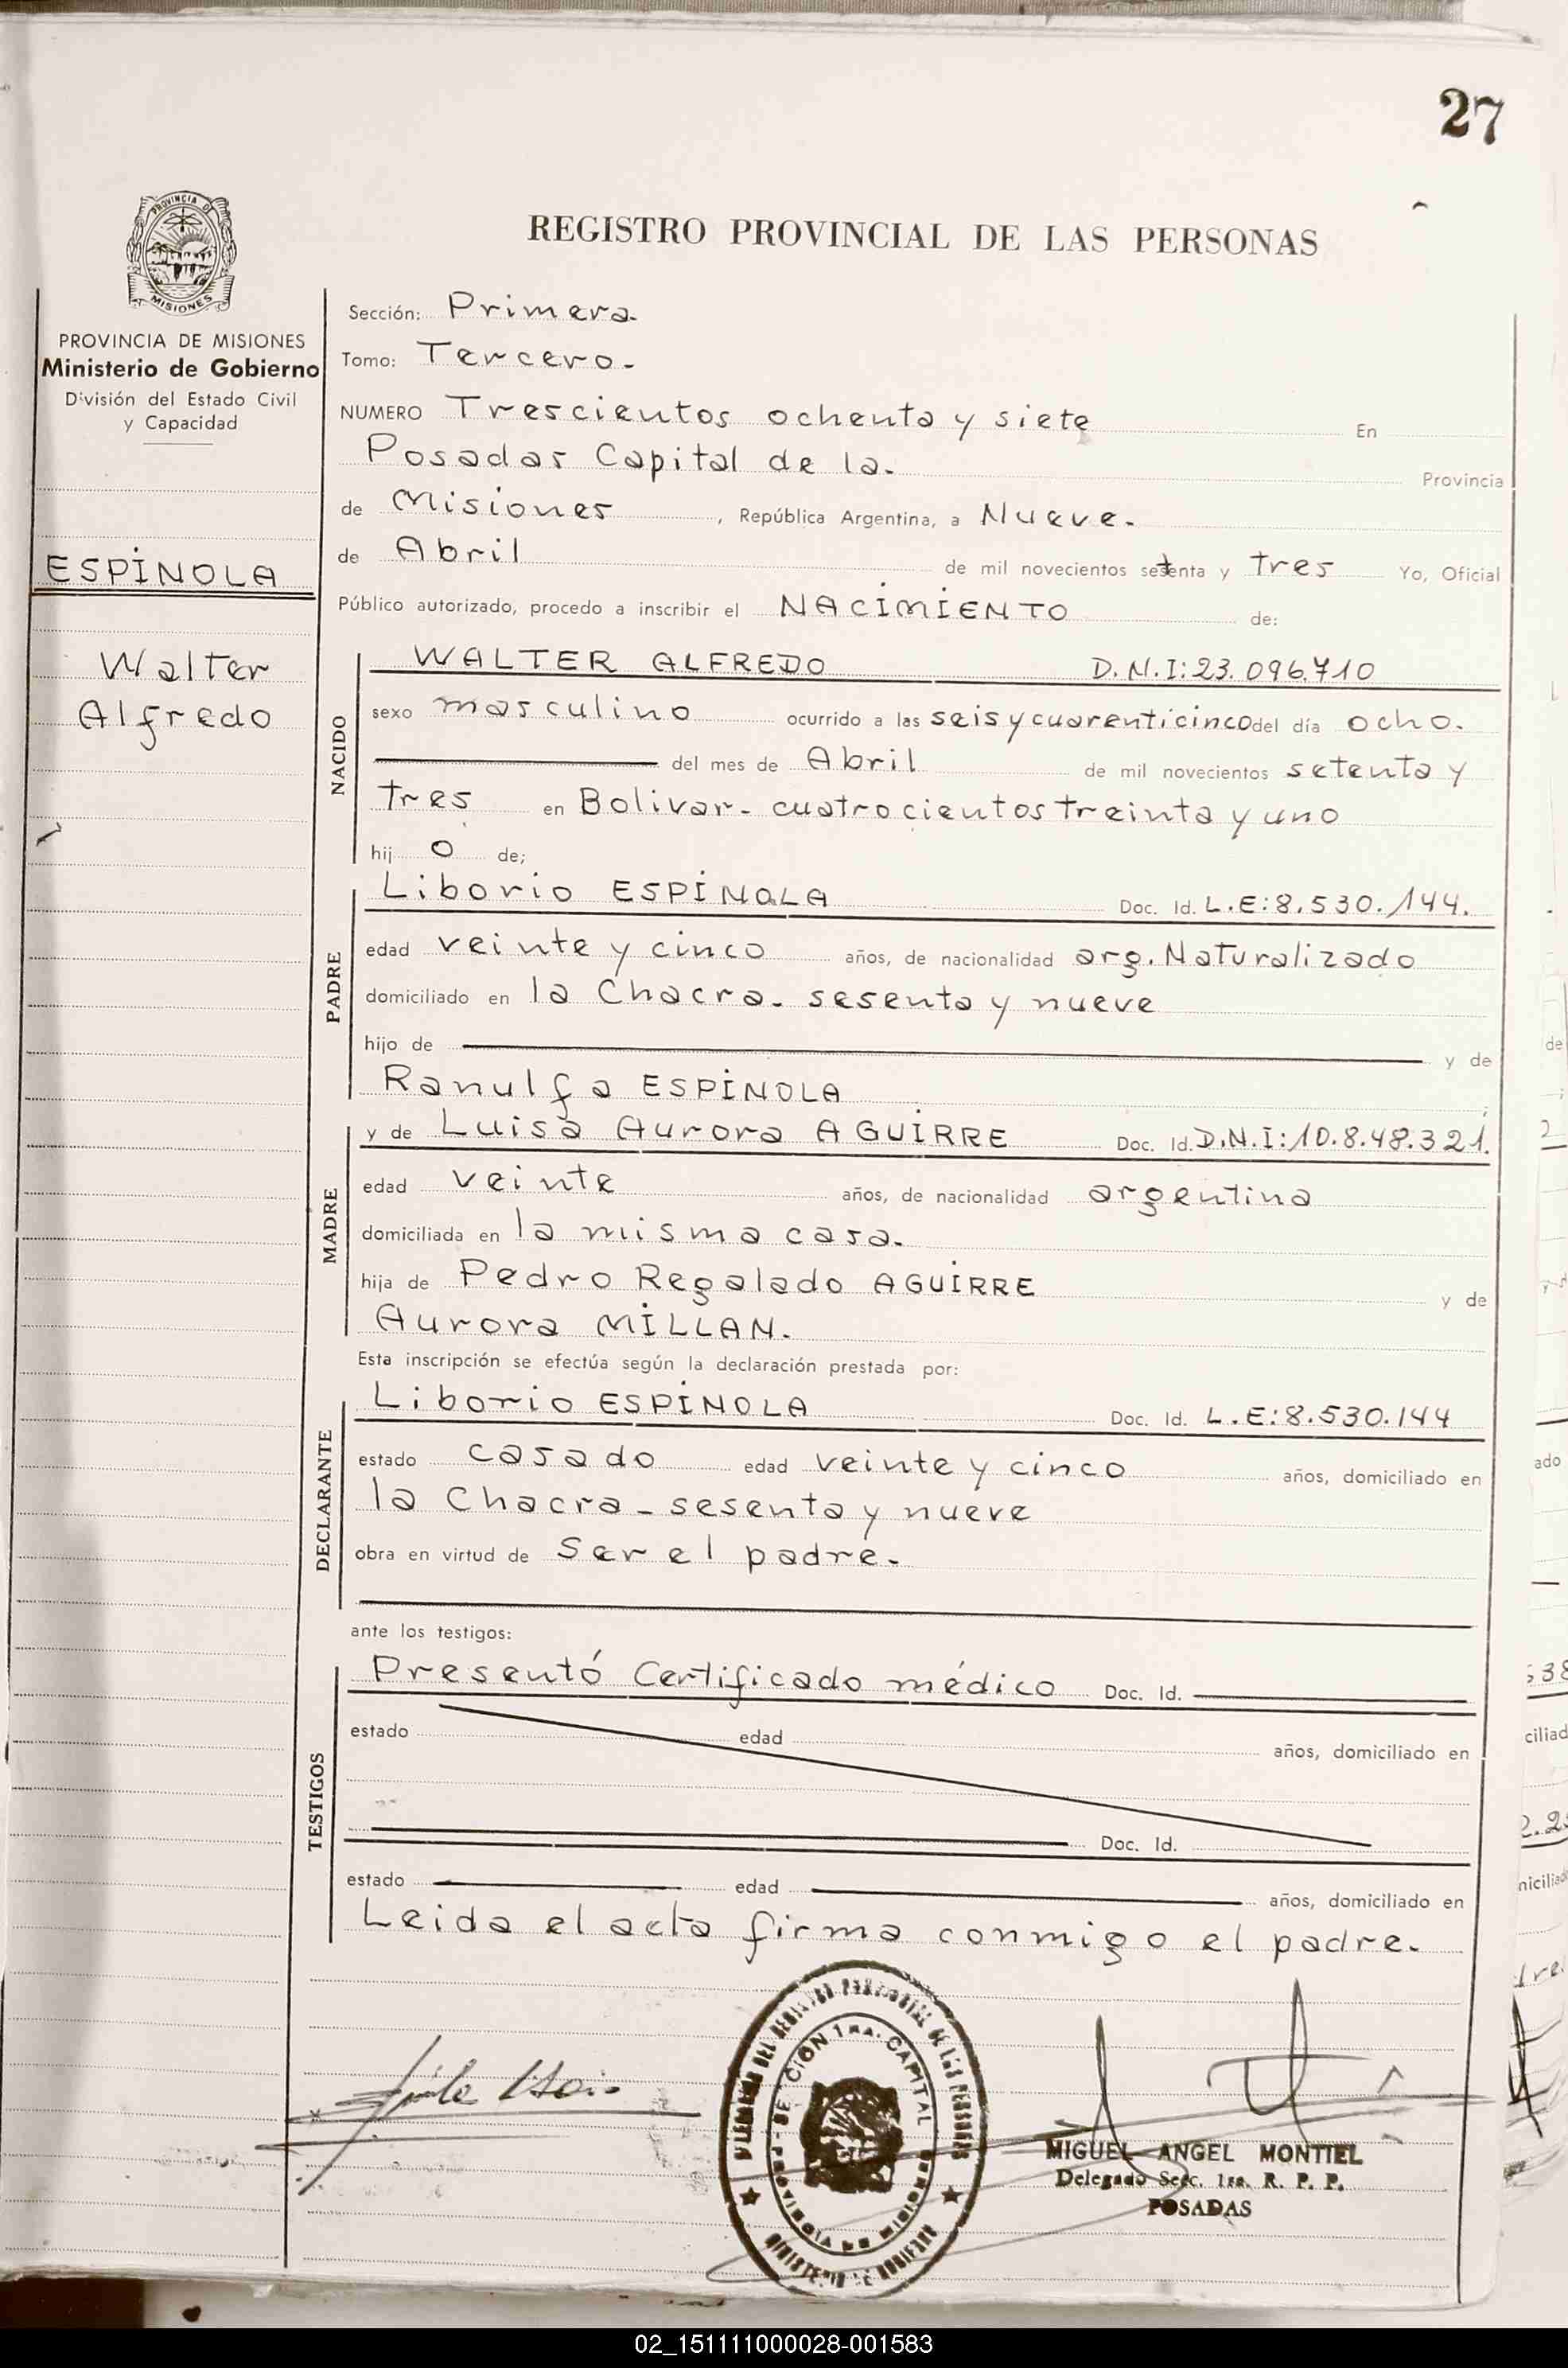 27
PROVINCIA DE
MISIONES
REGISTRO PROVINCIAL DE LAS PERSONAS
PROVINCIA DE MISIONES
Ministerio de Gobierno
División del Estado Civil
y Capacidad
ESPINOLA
Walter
Alfredo
Sección: Primera.
Tomo: Tercero.
NUMERO Trescientos ochenta y siete En
Posadas Capital de la. Provincia
de Misiones, República Argentina, a Nueve.
de Abril de mil novecientos setenta y tres Yo, Oficial
Público autorizado, procedo a inscribir el NACIMIENTO de:
NACIDO
WALTER ALFREDO D.N.I:23.096.710
sexo masculino ocurrido a las seis y cuarenticinco del día ocho.
del mes de Abril de mil novecientos setenta y
tres en Bolivar. cuatrocientos treinta y uno
hij o de;
PADRE
Liborio ESPINOLA Doc. Id. L.E:8.530.144.
edad veinte y cinco años, de nacionalidad arg. Naturalizado
domiciliado en la Chacra. sesenta y nueve
hijo de y de
Ranulfa ESPINOLA
MADRE
y de Luisa Aurora AGUIRRE Doc. Id. D.N.I:10.8.48.321.
edad veinte años, de nacionalidad argentina
domiciliada en la misma casa.
hija de Pedro Regalado AGUIRRE y de
Aurora MILLAN.
Esta inscripción se efectúa según la declaración prestada por:
DECLARANTE
Liborio ESPINOLA Doc. Id. L.E:8.530.144
estado casado edad veinte y cinco años, domiciliado en
la Chacra - sesenta y nueve
obra en virtud de Ser el padre.
ante los testigos:
TESTIGOS
Presentó Certificado médico Doc. Id.
estado edad años, domiciliado en
Doc. Id.
estado edad años, domiciliado en
Leida el acta firma conmigo el padre.
SECCION 1ra. CAPITAL
PROVINCIA DE MISIONES
MINISTERIO DE GOBIERNO
MIGUEL ANGEL MONTIEL
Delegado Secc. 1ra. R. P. P.
POSADAS
02_151111000028-001583